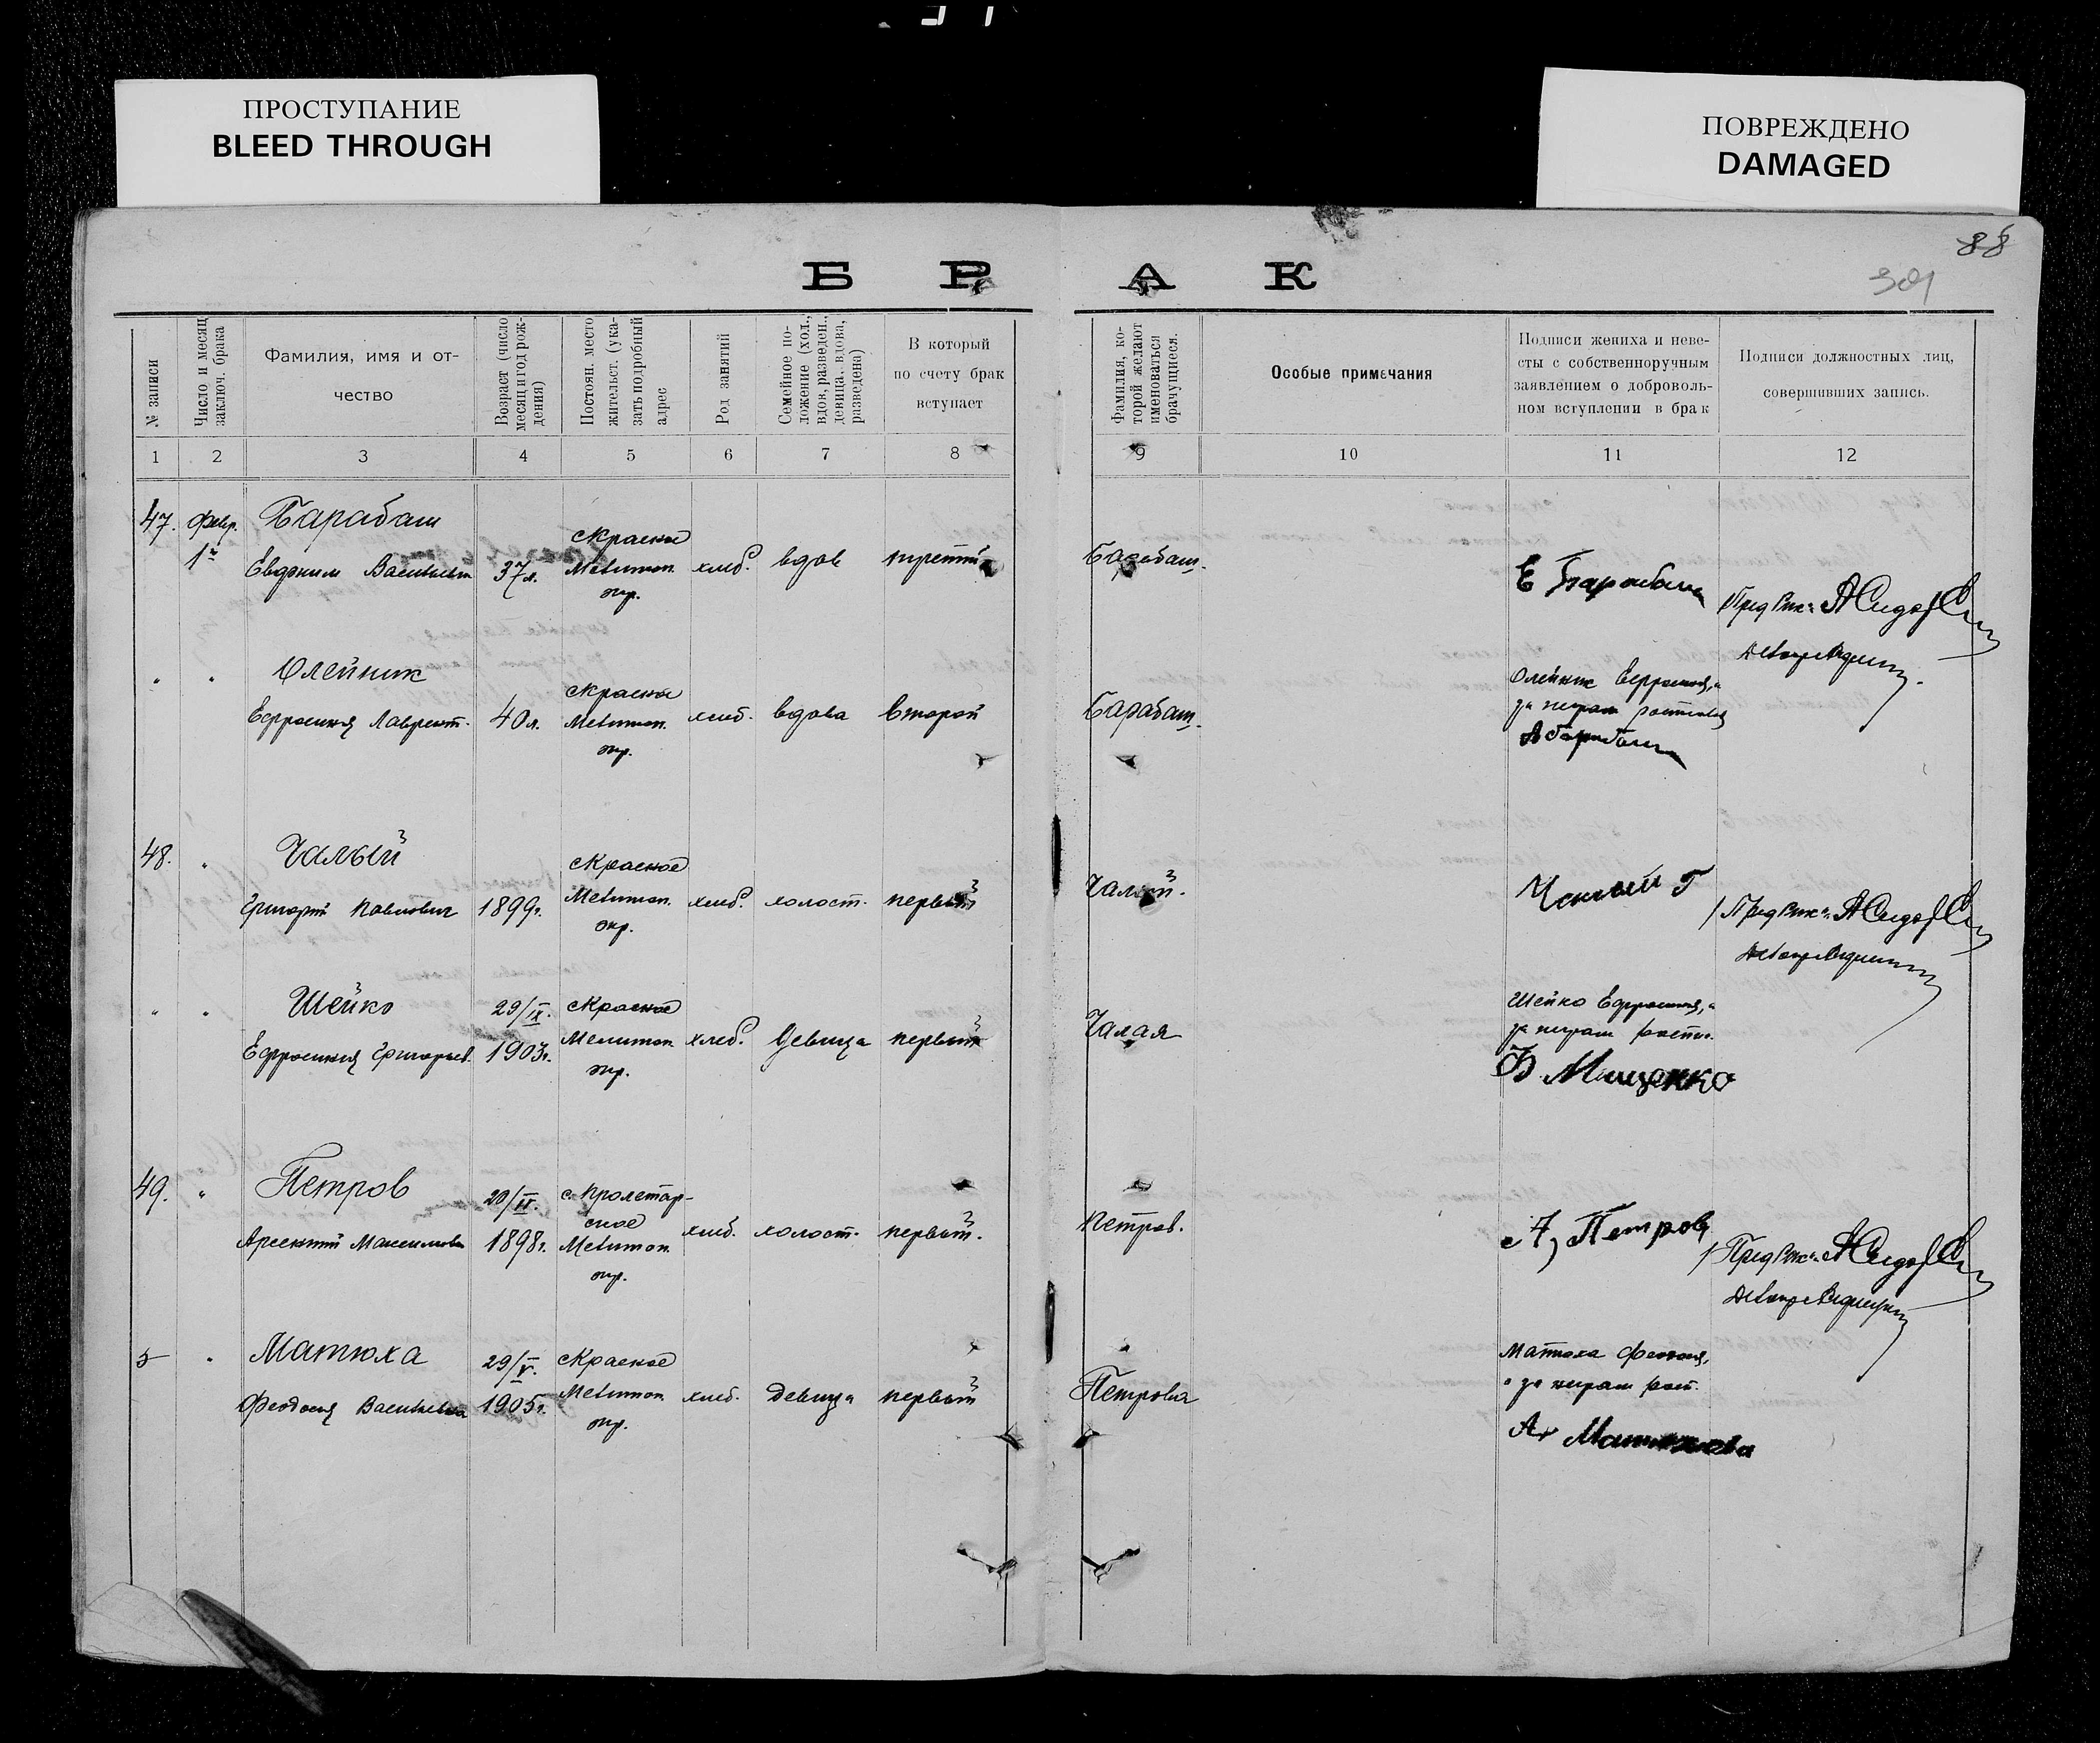 ПРОСТУПАНИЕ
BLEED THROUGH
ПОВРЕЖДЕНО
DAMAGED
88
301
БРАК
№ записи
Число и месяц
заключ. брака
Фамилия, имя и от-
чество
Возраст (число
месяц и год рож-
дения)
Постоян. место
жительст. (ука-
зать подробный
адрес
Род занятий
Семейное по-
ложение (хол.,
вдов, разведен.,
девица, вдова,
разведена)
В который
по счету брак
вступает
Фамилия, ко-
торой желают
именоваться
брачущиеся.
Особые примечания
Подписи жениха и неве-
сты с собственноручным
заявлением о доброволь-
ном вступлении в брак
Подписи должностных лиц,
совершивших запись.
1 2 3 4 5 6 7 8 9 10 11 12
47. Февр. Барабаш
1го Евдоким Васильев 37 л. с Красное хлеб. вдов третий Барабаш.
Мелитоп.
окр.
Е Барабаш
Пред Рик
" " Олейник
Ефросиния Лаврент. 40 л. с Красное хлеб. вдова второй Барабаш.
Мелитоп.
окр.
Олейник Ефросиния, а
за неграм
48. " Чалый
Григорий Павлович 1899 г. с Красное хлеб. холост. первый Чалый.
Мелитоп.
окр.
Чалый Г
Пред Рик
" " Шейко 29/IX. с Красное
Ефросиния Григорьев. 1903 г. Мелитоп хлеб. девица первый Чалая
окр.
Шейко Ефросиния, а
за неграм роспис.
Мищенко
49. " Петров 20/II. с. Пролетар-
ское
Арсентий Максимов 1898 г. Мелитоп хлеб. холост. первый. Петров.
окр.
А, Петров
Пред Рик
" Матюха 29/V. с Красное
Феодосия Васильевна 1905 г. Мелитоп хлеб. девица первый Петрова
окр.
Матюха Феодосия,
а за неграм росп.
А. Матюхова